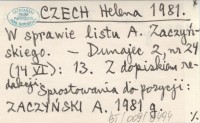 CZECH Helena 1981.
W sprawie listu A. Zaczyń-
skiego. – Dunajec 2, nr 24
(14 VI): 13. Z dopiskiem re-
dakcji.
Sprostowania do pozycji:
ZACZYŃSKI A. 1981 g.